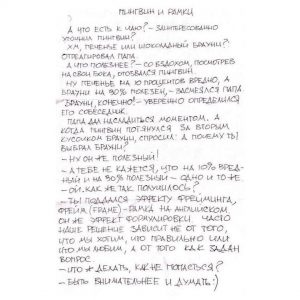 ПИНГВИН И РАМКИ
А ЧТО ЕСТЬ К ЧАЮ? – ЗАИНТЕРЕСОВАННО
УТОЧНИЛ ПИНГВИН.
ХМ, ПЕЧЕНЬЕ ИЛИ ШОКОЛАДНЫЙ БРАУНИ?
ОТРЕАГИРОВАЛ ПАПА.
А ЧТО ПОЛЕЗНЕЕ? – СО ВЗДОХОМ, ПОСМОТРЕВ
НА СВОИ БОКА, ОТОЗВАЛСЯ ПИНГВИН.
НУ ПЕЧЕНЬЕ НА 10 ПРОЦЕНТОВ ВРЕДНО, А
БРАУНИ НА 90% ПОЛЕЗЕН, – ЗАСМЕЯЛСЯ ПАПА
БРАУНИ, КОНЕЧНО! – УВЕРЕННО ОПРЕДЕЛИЛСЯ
ЕГО СОБЕСЕДНИК.
ПАПА ДАЛ НАСЛАДИТЬСЯ МОМЕНТОМ, А
КОГДА ПИНГВИН ПОТЯНУЛСЯ ЗА ВТОРЫМ
КУСОЧКОМ БРАУНИ, СПРОСИЛ: А ПОЧЕМУ ТЫ
ВЫБРАЛ БРАУНИ?
– НУ ОН ЖЕ ПОЛЕЗНЫЙ!
– А ТЕБЕ НЕ КАЖЕТСЯ, ЧТО НА 10% ВРЕД-
НЫЙ И НА 90% ПОЛЕЗНЫЙ – ОДНО И ТО ЖЕ
– ОЙ. КАК ЖЕ ТАК ПОЛУЧИЛОСЬ?
– ТЫ ПОДДАЛСЯ ЭФФЕКТУ ФРЕЙМИНГА,
ФРЕЙМ (FRAME) – РАМКА НА АНГЛИЙСКОМ
ОН ЖЕ ЭФФЕКТ ФОРМУЛИРОВКИ. ЧАСТО
НАШЕ РЕШЕНИЕ ЗАВИСИТ НЕ ОТ ТОГО,
ЧТО МЫ ХОТИМ, ЧТО ПРАВИЛЬНО ИЛИ
ЧТО МЫ ЛЮБИМ, А ОТ ТОГО КАК ЗАДАН
ВОПРОС.
– ЧТО Ж ДЕЛАТЬ, КАК НЕ ПОПАСТЬСЯ?
– БЫТЬ ВНИМАТЕЛЬНЕЕ И ДУМАТЬ :)